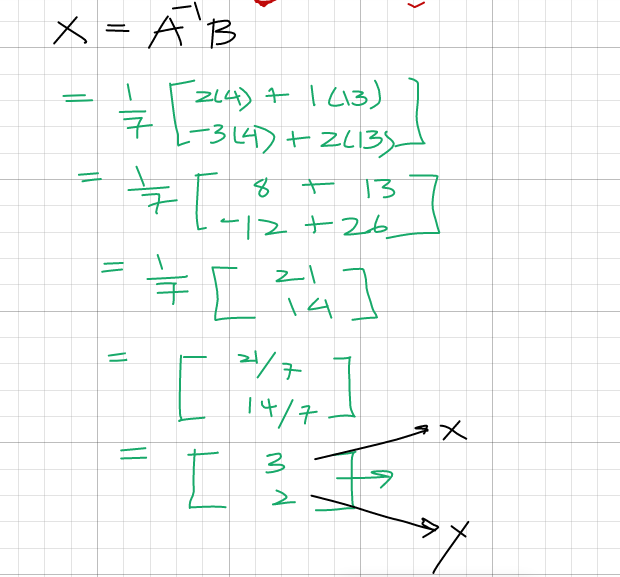 X = A⁻¹B
= 1/7 [ 2(4) + 1(13)
-3(4) + 2(13) ]
= 1/7 [ 8 + 13
-12 + 26 ]
= 1/7 [ 21
14 ]
= [ 21/7
14/7 ]
= [ 3 → x
2 ] → y